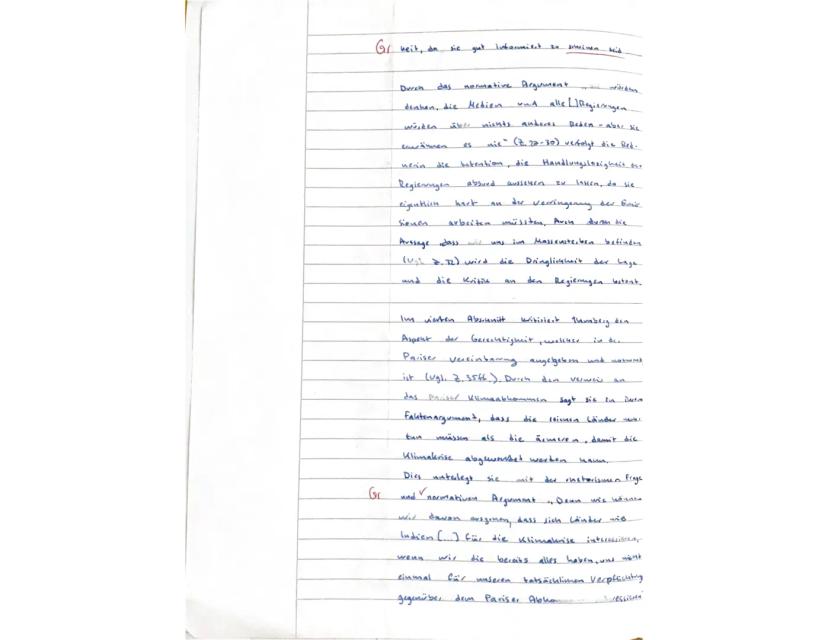 Gr heit, da sie gut informiert zu scheinen seid
Durch das normative Argument würden
denken, die Medien und alle [.] Regierungen
würden über nichts anderes Reden - aber sie
erwähnen es nie" (Z. 29-30) verfolgt die Red-
nerin die Intention, die Handlungslosigkeit der
Regierungen absurd aussehen zu lassen, da sie
eigentlich hart an der verringerung der Emis
sionen arbeiten müssten. Auch durch die
Aussage dass wir uns im Massensterben befinden
(Vgl. Z. 32) wird die Dringlichkeit der Lage
und die Kritik an den Regierungen betont.
Im vierten Abschnitt kritisiert Thunberg den
Aspekt der Gerechtigkeit, welcher in der
Pariser Vereinbarung angegeben und
ist (Vgl. Z. 35ff.). Durch den Verweis an
das Pariser Klimaabkommen sagt sie in ihrem
Faktenargument, dass die reichen Länder mehr
tun müssen als die ärmeren, damit die
Klimakrise abgewendet werden kann.
Dies unterlegt sie mit der rhetorischen Frage
Gr und √ normativen Argument „Denn wie können
wir davon ausgehen, dass sich Länder wie
Indien [...] für die Klimakrise interessieren,
wenn wir die bereits alles haben, uns nicht
einmal für unseren tatsächlichen Verpflichtig
gegenüber dem Pariser Abkom